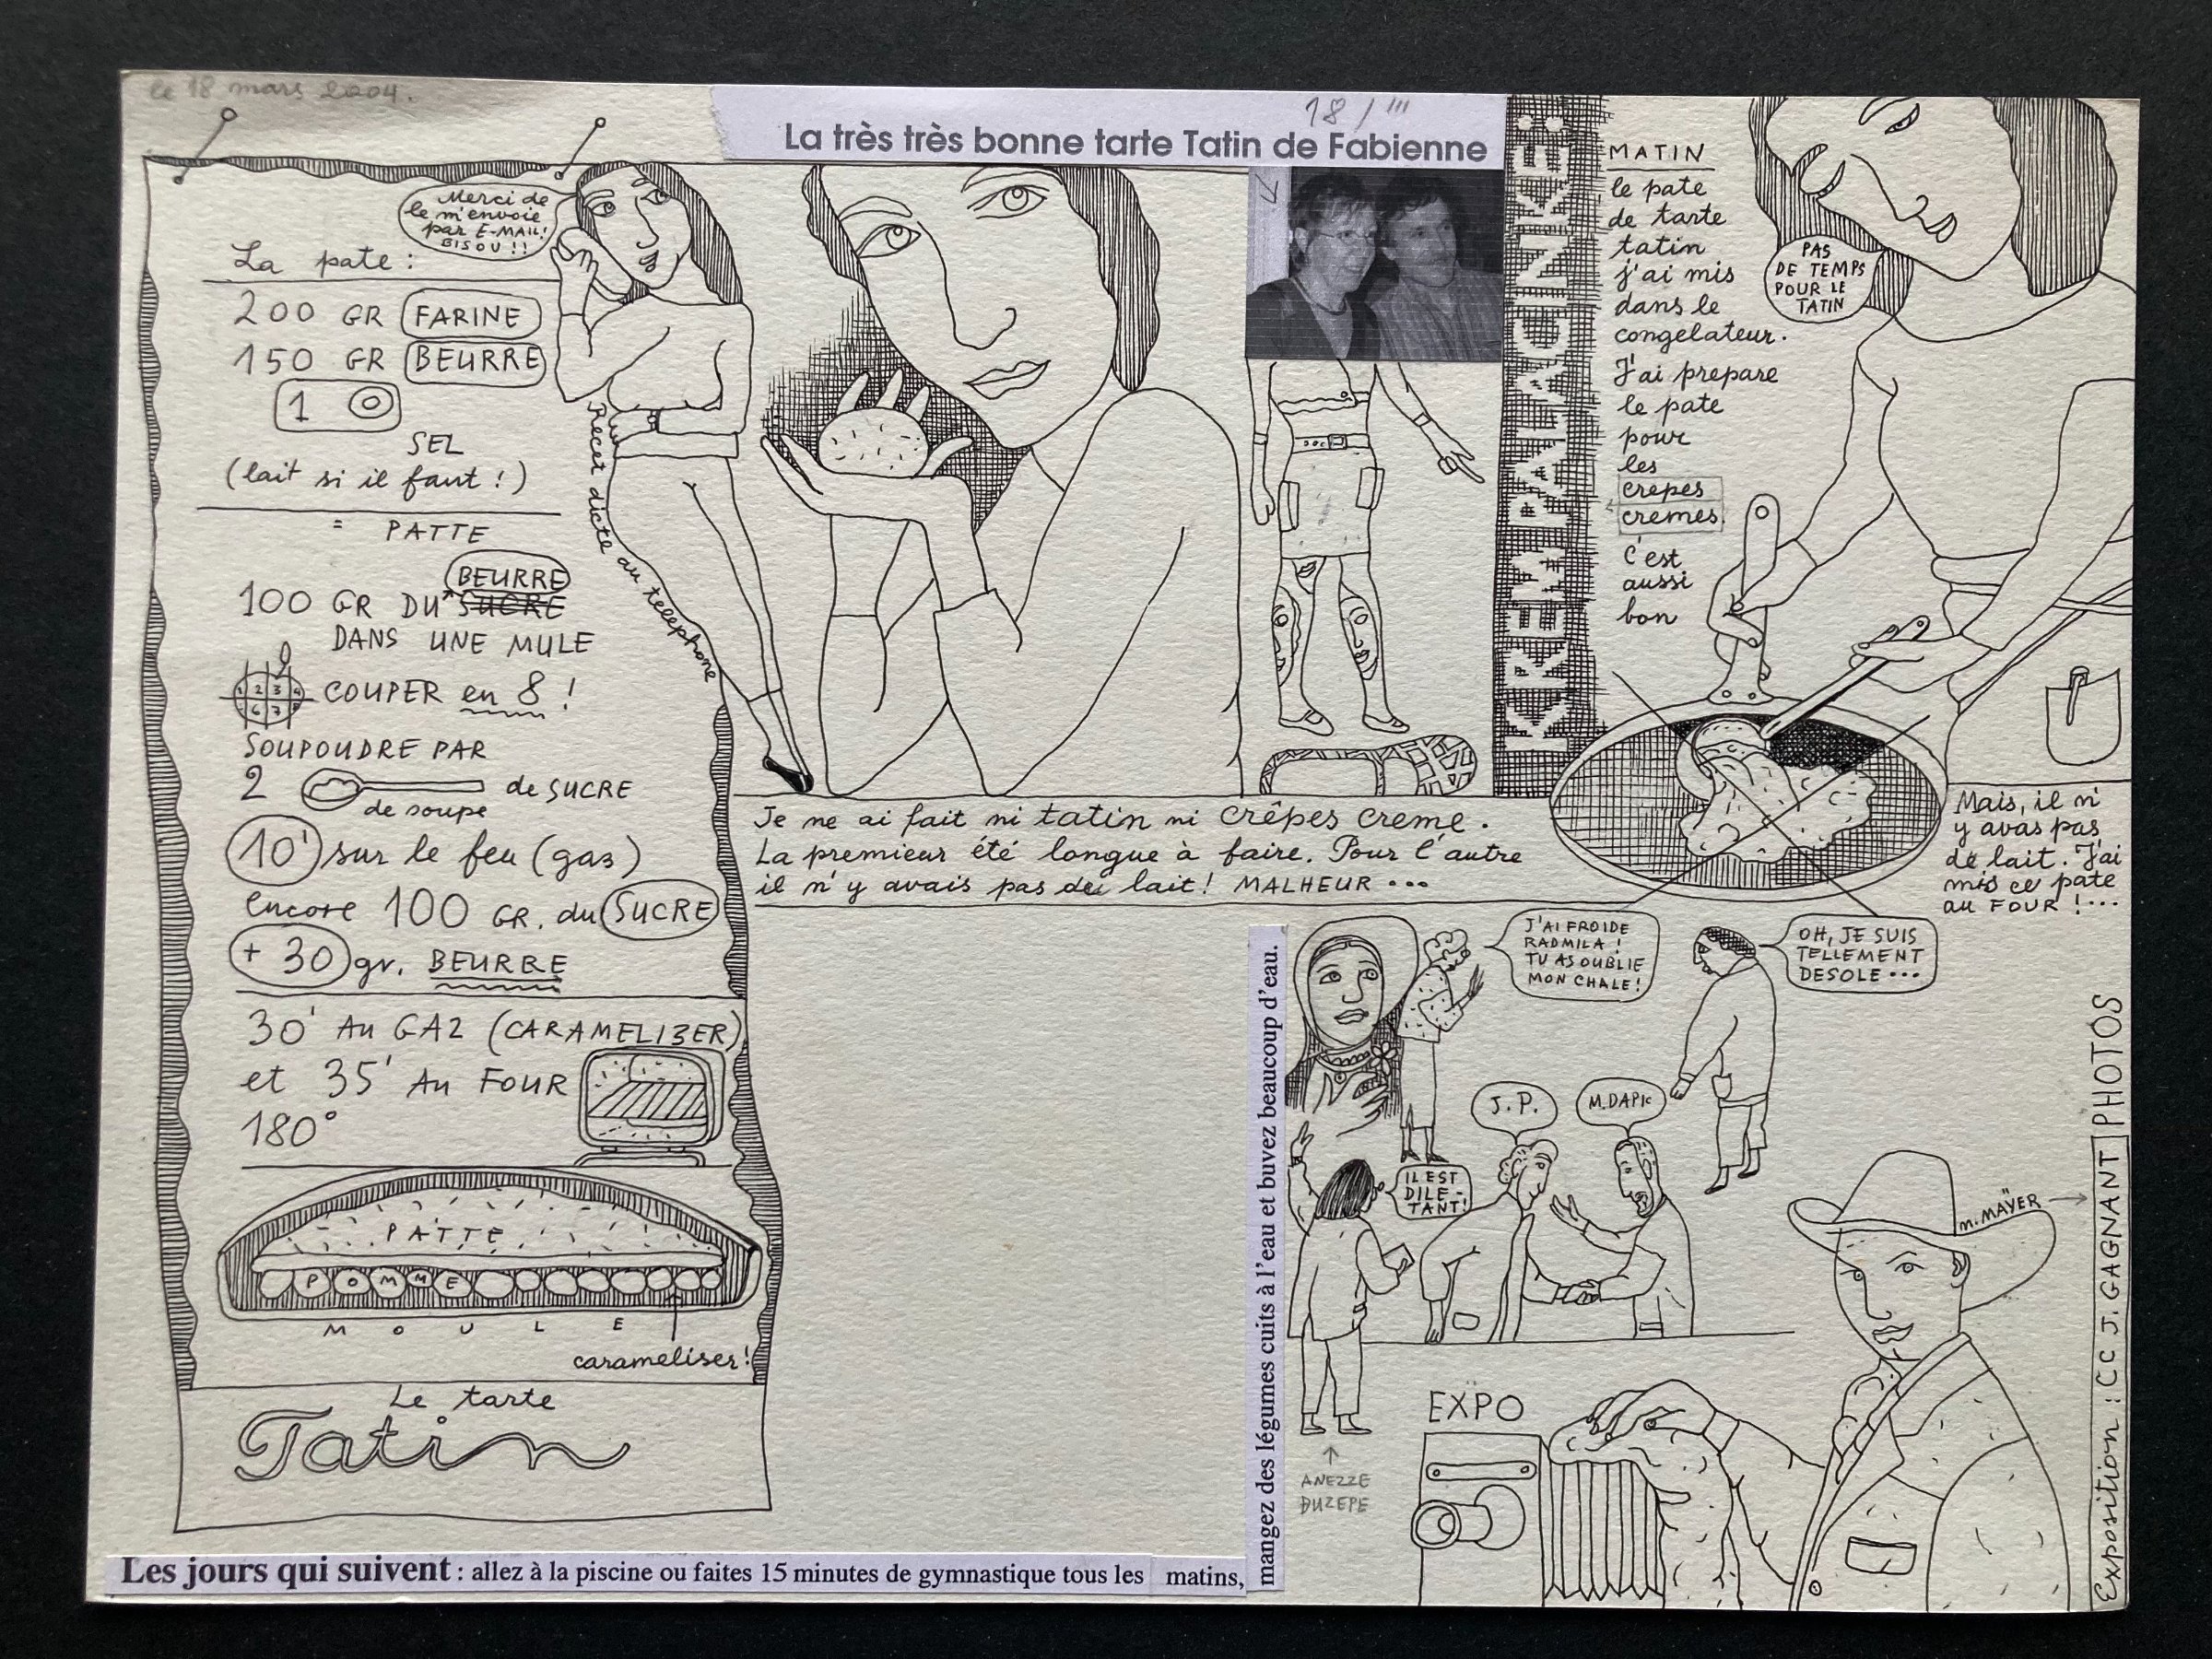 le 18 mars 2004.
18/III
La très très bonne tarte Tatin de Fabienne
Merci de
le m'envoie
par E-MAIL!
BISOU!!
La pate :
200 GR FARINE
150 GR BEURRE
1
SEL
(lait si il faut !)
= PATTE
BEURRE
100 GR DU SUCRE
DANS UNE MULE
1 2 3 4
6 7
COUPER en 8 !
SOUPOUDRE PAR
2 de SUCRE
de soupe
10' sur le feu (gaz)
encore 100 GR. du SUCRE
+ 30 gr. BEURRE
30' AU GAZ (CARAMELIZER)
et 35' AU FOUR
180°
PATTE
POMME
MOULE
carameliser!
Le tarte
Tatin
Recet dicté au telephone
KREMPALACINKE:
MATIN
le pate
de tarte
tatin
j'ai mis
dans le
congelateur.
J'ai prepare
le pate
pour
les
crepes
cremes.
C'est
aussi
bon
PAS
DE TEMPS
POUR LE
TATIN
Je ne ai fait ni tatin ni crêpes creme.
La premieur été longue à faire. Pour l'autre
il n'y avais pas de lait! MALHEUR ...
Mais, il n'
y avas pas
de lait. J'ai
mis ce pate
au FOUR !...
J'AI FROIDE
RADMILA !
TU AS OUBLIE
MON CHALE!
OH, JE SUIS
TELLEMENT
DESOLE...
J.P.
M.DAPIC
IL EST
DILE-
TANT!
ANEZZE
DUZEPE
EXPO
M. MAŸER
Exposition : CC J. GAGNANT PHOTOS
Les jours qui suivent : allez à la piscine ou faites 15 minutes de gymnastique tous les matins,
mangez des légumes cuits à l'eau et buvez beaucoup d'eau.